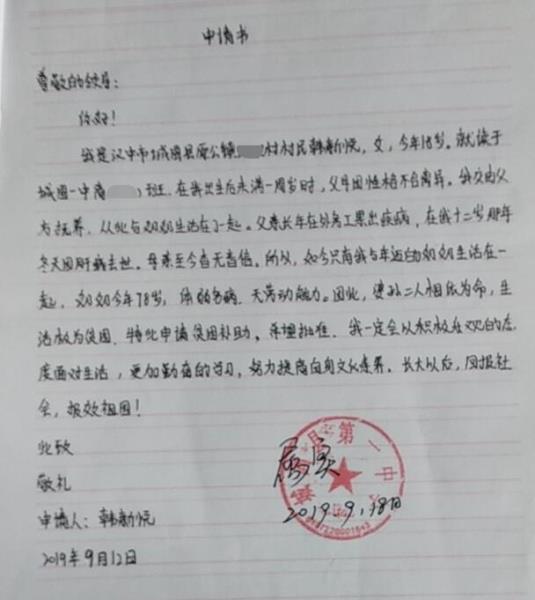 申请书
尊敬的领导：
你好！
我是汉中市城固县原公镇村村民韩新悦，女，今年18岁。就读于
城固一中高班。在我出生后未满一周岁时，父母因性格不合离异。我交由父
方抚养，从此与奶奶生活在了一起。父亲长年在外务工累出疾病，在我十二岁那年
冬天因肝病去世。母亲至今杳无音信。所以，如今只有我与年迈的奶奶生活在一
起，奶奶今年78岁，体弱多病，无劳动能力。因此，婆孙二人相依为命，生
活极为贫困，特此申请贫困补助。希望批准，我一定会以积极在观的态
度面对生活，更加勤奋的学习，努力提高自身文化素养。长大以后，回报社
会，报效祖国！
此致
敬礼
申请人：韩新悦
2019年9月12日
属实
2019.9.18日
第一中